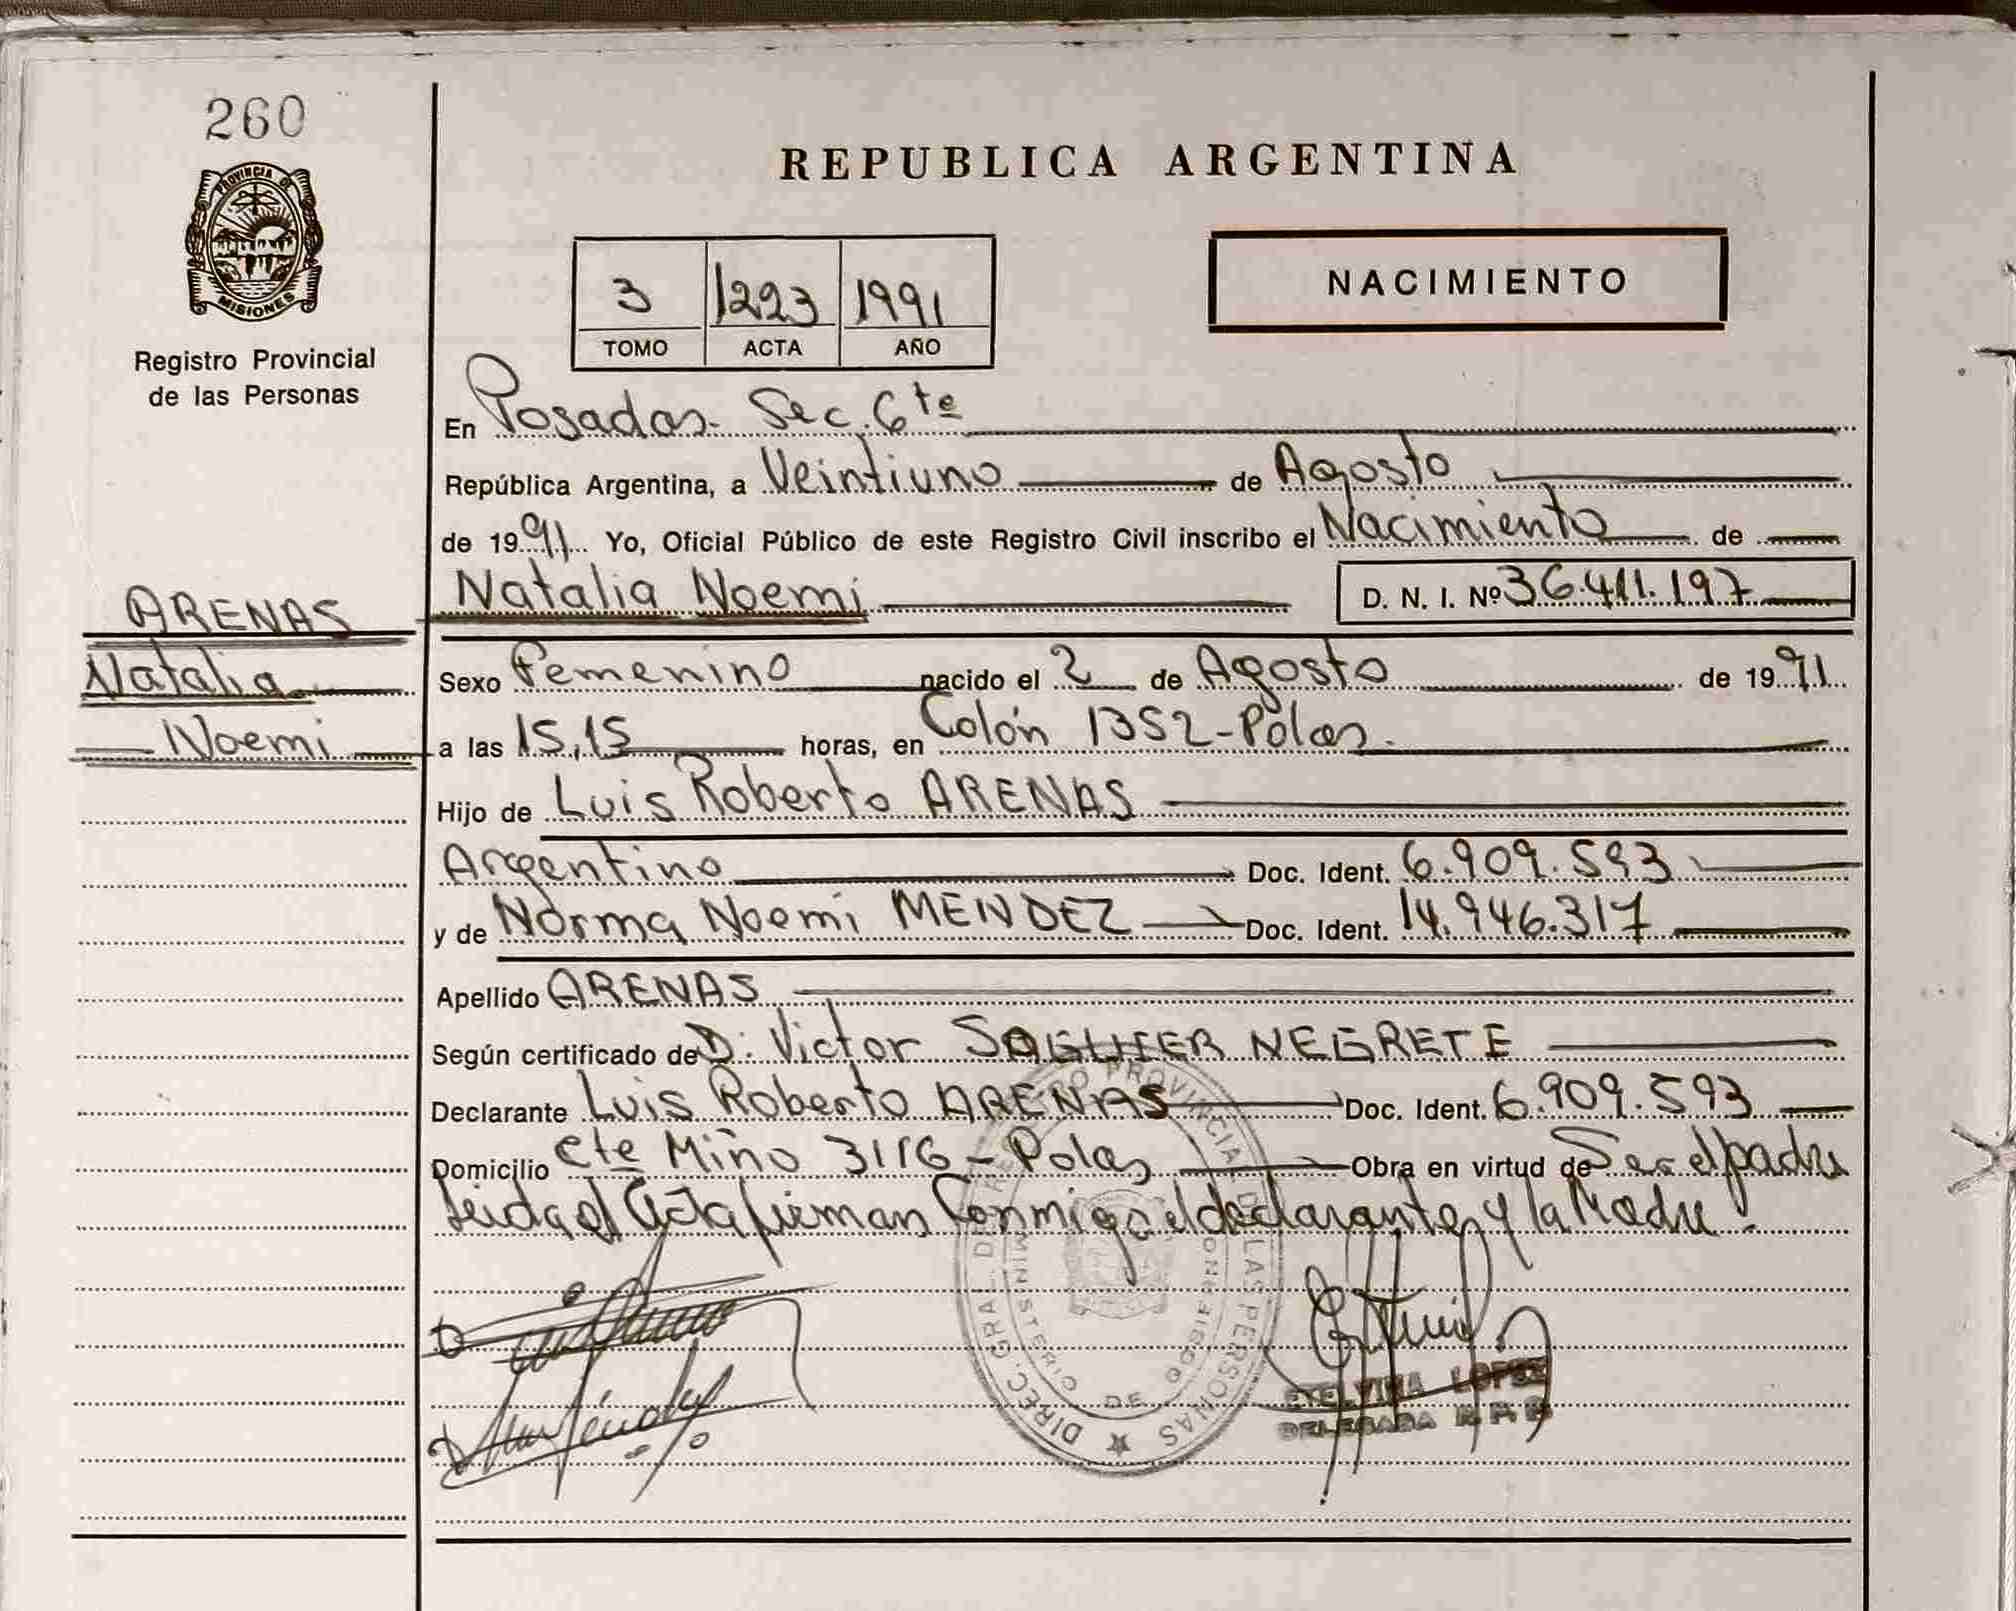 260
REPUBLICA ARGENTINA
PROVINCIA DE
MISIONES
Registro Provincial
de las Personas
3 1223 1991
TOMO ACTA AÑO
NACIMIENTO
En Posadas. Sec. 6te
República Argentina, a Veintiuno de Agosto
de 1991 Yo, Oficial Público de este Registro Civil inscribo el Nacimiento de
Natalia Noemi D. N. I. Nº 36.411.197
ARENAS
Natalia
Noemi
Sexo Femenino nacido el 2 de Agosto de 1991
a las 15,15 horas, en Colón 1352-Pdas.
Hijo de Luis Roberto ARENAS
Argentino Doc. Ident. 6.909.593
y de Norma Noemi MENDEZ Doc. Ident. 14.946.317
Apellido ARENAS
Según certificado de D. Victor SAGUIER NEGRETE
Declarante Luis Roberto ARENAS Doc. Ident. 6.909.593
Domicilio Cte Miño 3116 - Pdas Obra en virtud de Ser el padre
leida el Acta firman Conmigo el declarante y la Madre.
DIREC. GRAL. DE REGISTRO PROVINCIAL DE LAS PERSONAS
MINISTERIO DE GOBIERNO
ETELVINA LOPEZ
DELEGADA R. P. P.